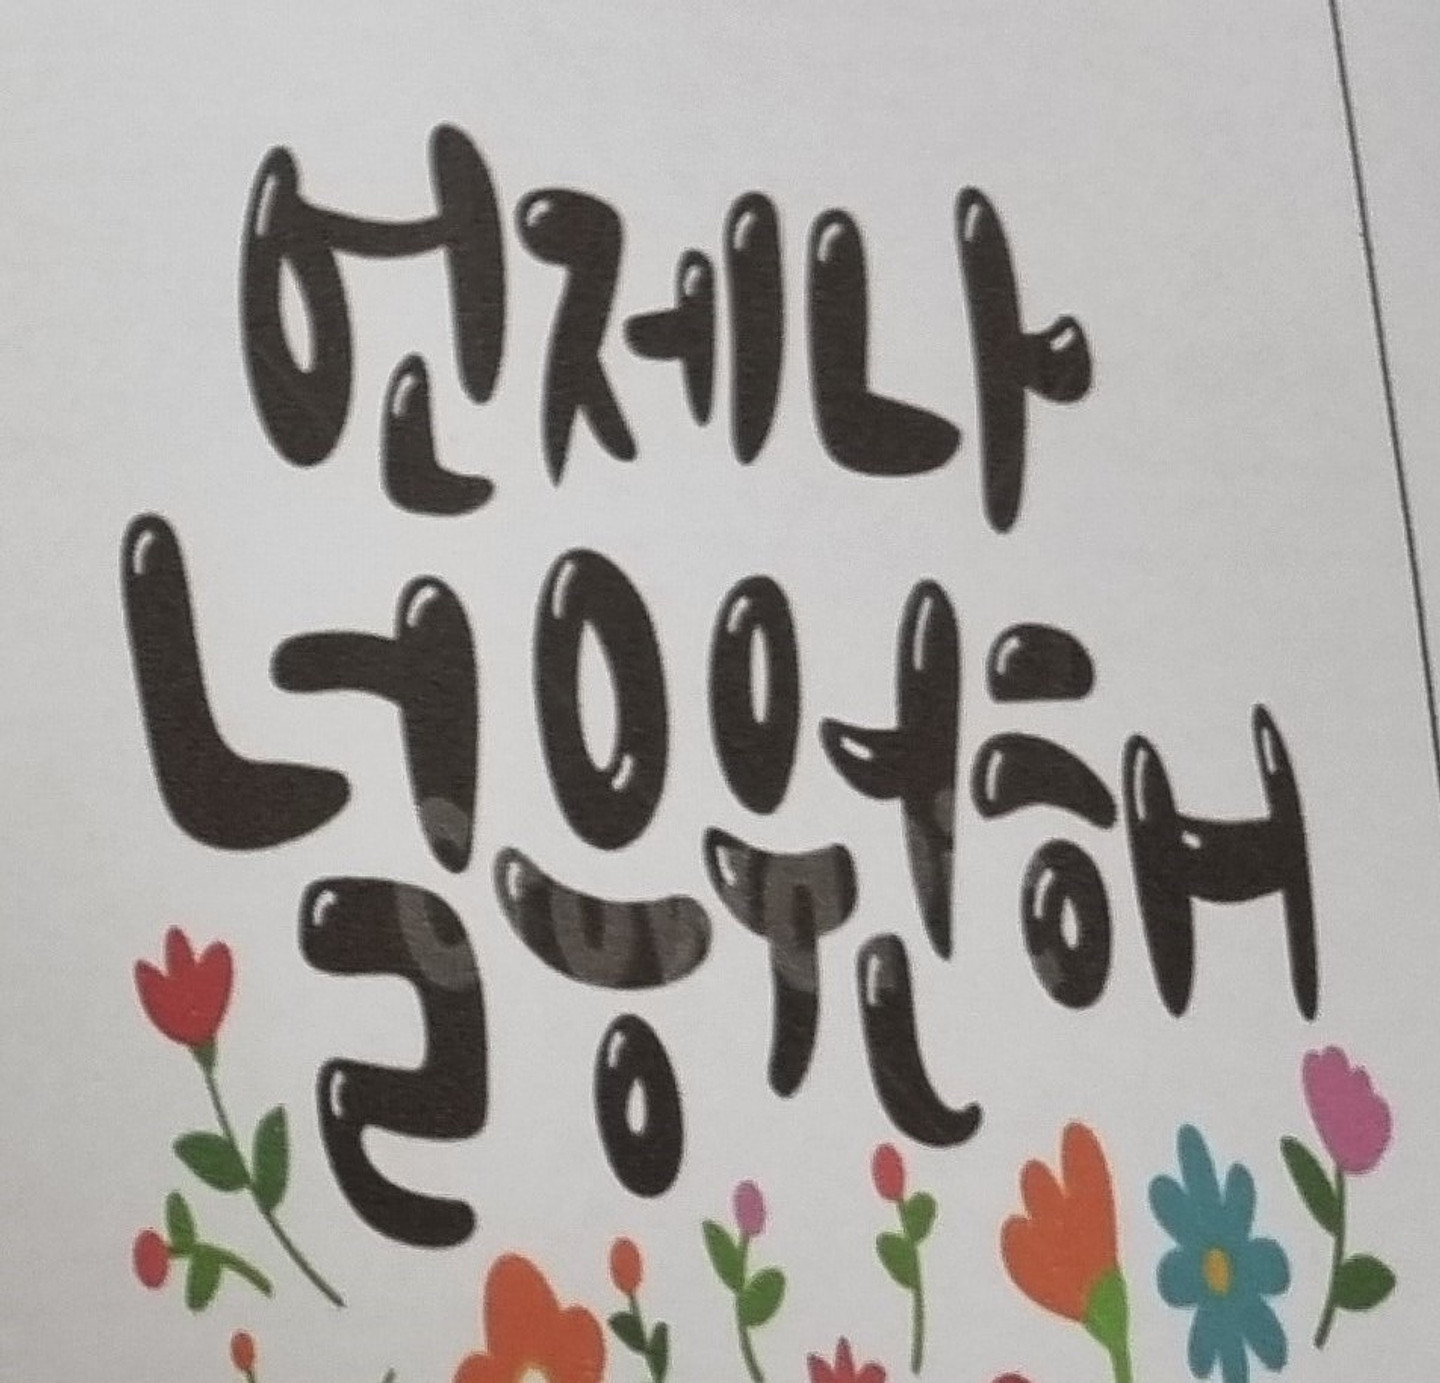 언제나
널 응원해